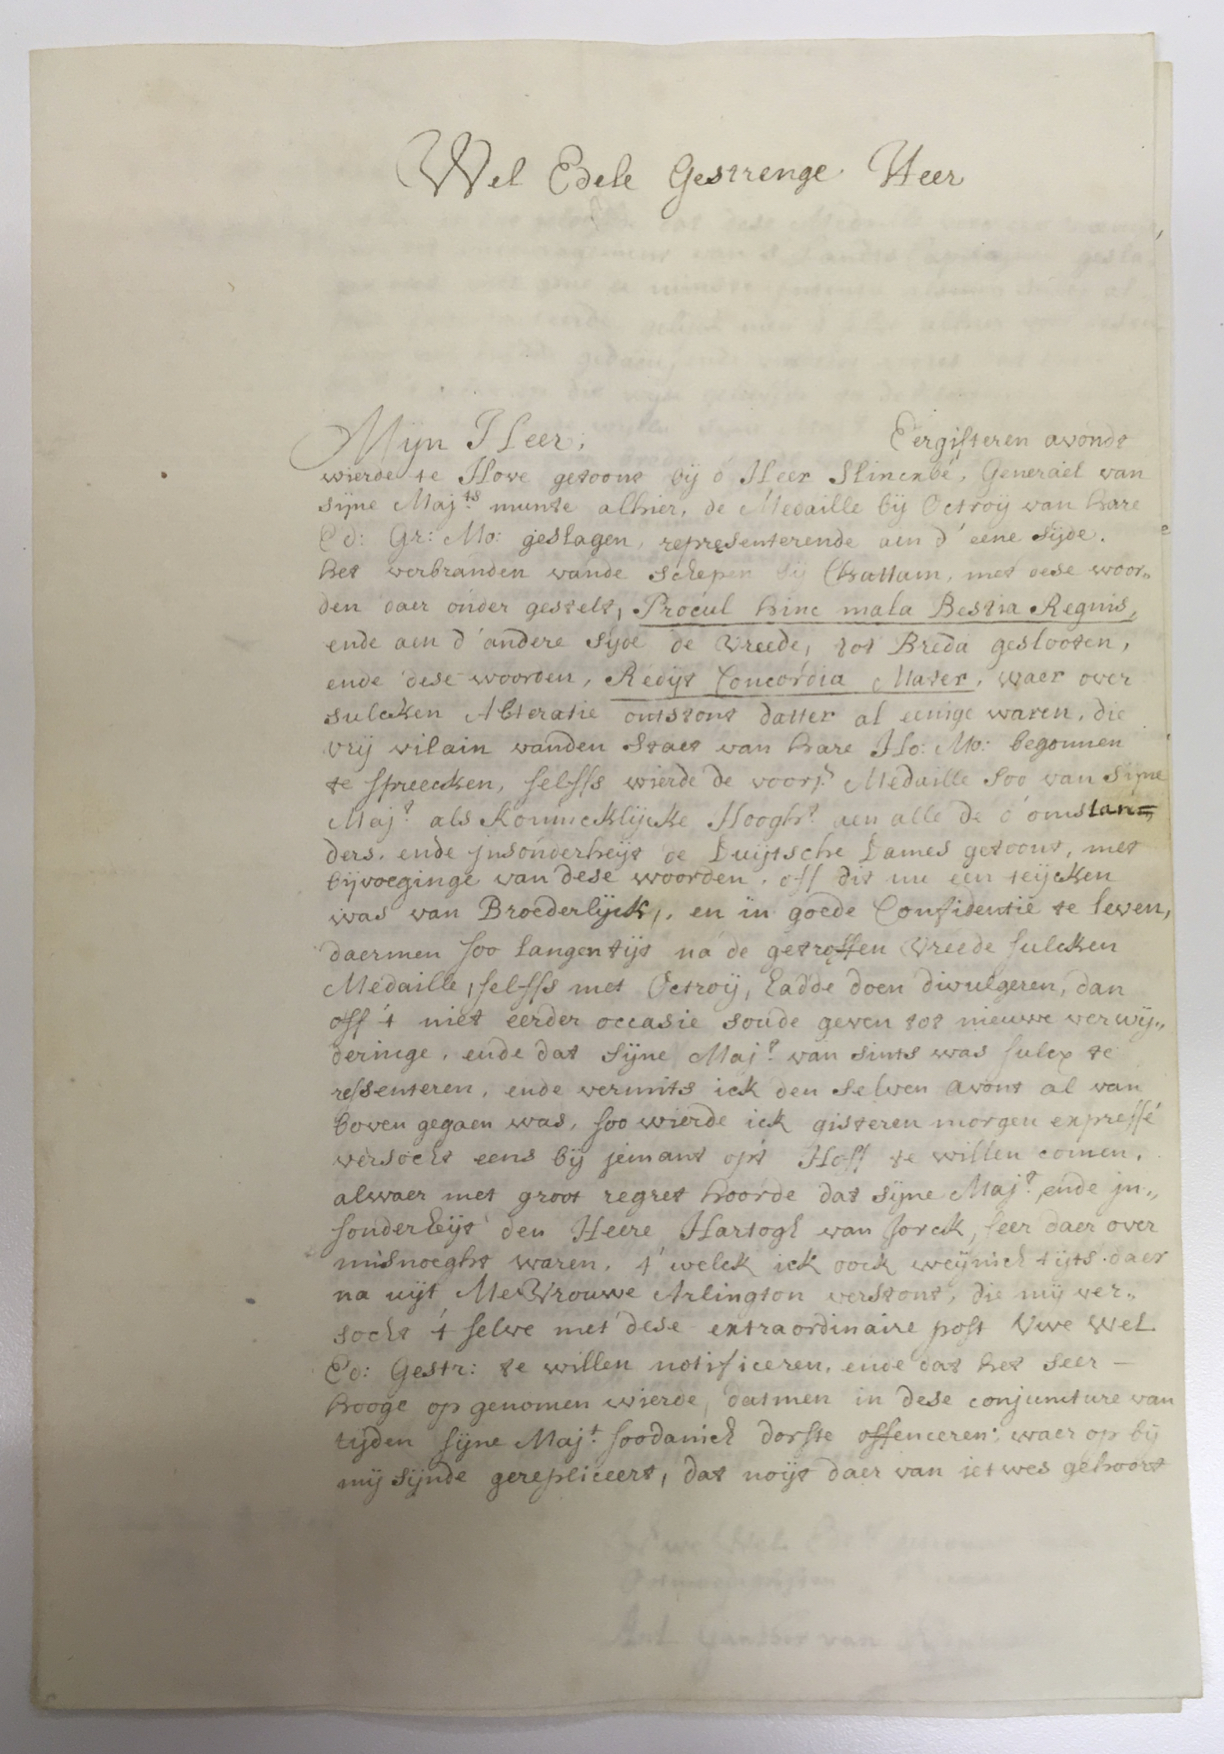 Wel Edele Gestrenge Heer
Mijn Heer, Eergisteren avondt
wierde te Hove getoont bij d' Heer Slincxbé, Generael van
Sijne Maj:ts munte alhier, de Medaille bij Octroij van hare
Ed: Gr: Mo: geslagen, representerende aen d' eene sijde.
het verbranden vande schepen bij Chattam, met dese woor„
den daer onder gestelt, Procul hinc mala Bestia Regnis,
ende aen d' andere sijde de Vreede, tot Breda geslooten,
ende dese woorden, Redijt Concordia Mater, waer over
sulcken Alteratie ontstont datter al eenige waren, die
vrij vilain vanden Staet van hare Ho: Mo: begonnen
te spreecken, selffs wierde de voors: Medaille soo van Sijne
Maj:t als Konincklijcke Hoogh:t aen alle de d' omstan=
ders, ende jnsonderheijt de Duijtsche Dames getoont, met
bijvoeginge van dese woorden, off dit nu een teijcken
was van Broederlijck, en in goede Confidentie te leven,
daermen soo langen tijt na de getroffen Vreede sulcken
Medaille, selffs met Octroij, hadde doen divulgeren, dan
off 't niet eerder occasie soude geven tot nieuwe verwij„
deringe, ende dat Sijne Maj:t van sints was sulcx te
ressenteren, ende vermits ick den selven avont al van
boven gegaen was, soo wierde ick gisteren morgen expresse
versocht eens bij jemant op't Hoff te willen comen,
alwaer met groot regret hoorde dat sijne Maj:t, ende jn„
sonderheijt den Heere Hartogh van Jorck, seer daer over
misnoeght waren, t' welck ick oock weijnich tijts daer
na uijt Mevrouwe Arlington verstont, die mij ver„
socht 't selve met dese extraordinaire post Uwe Wel
Ed: Gestr: te willen notificeren, ende dat het seer –
hooge op genomen wierde, datmen in dese conjuncture van
tijden sijne Maj:t soodanich dorste offenceren; waer op bij
mij sijnde gerepliceert, dat noijt daer van ietwes gehoort